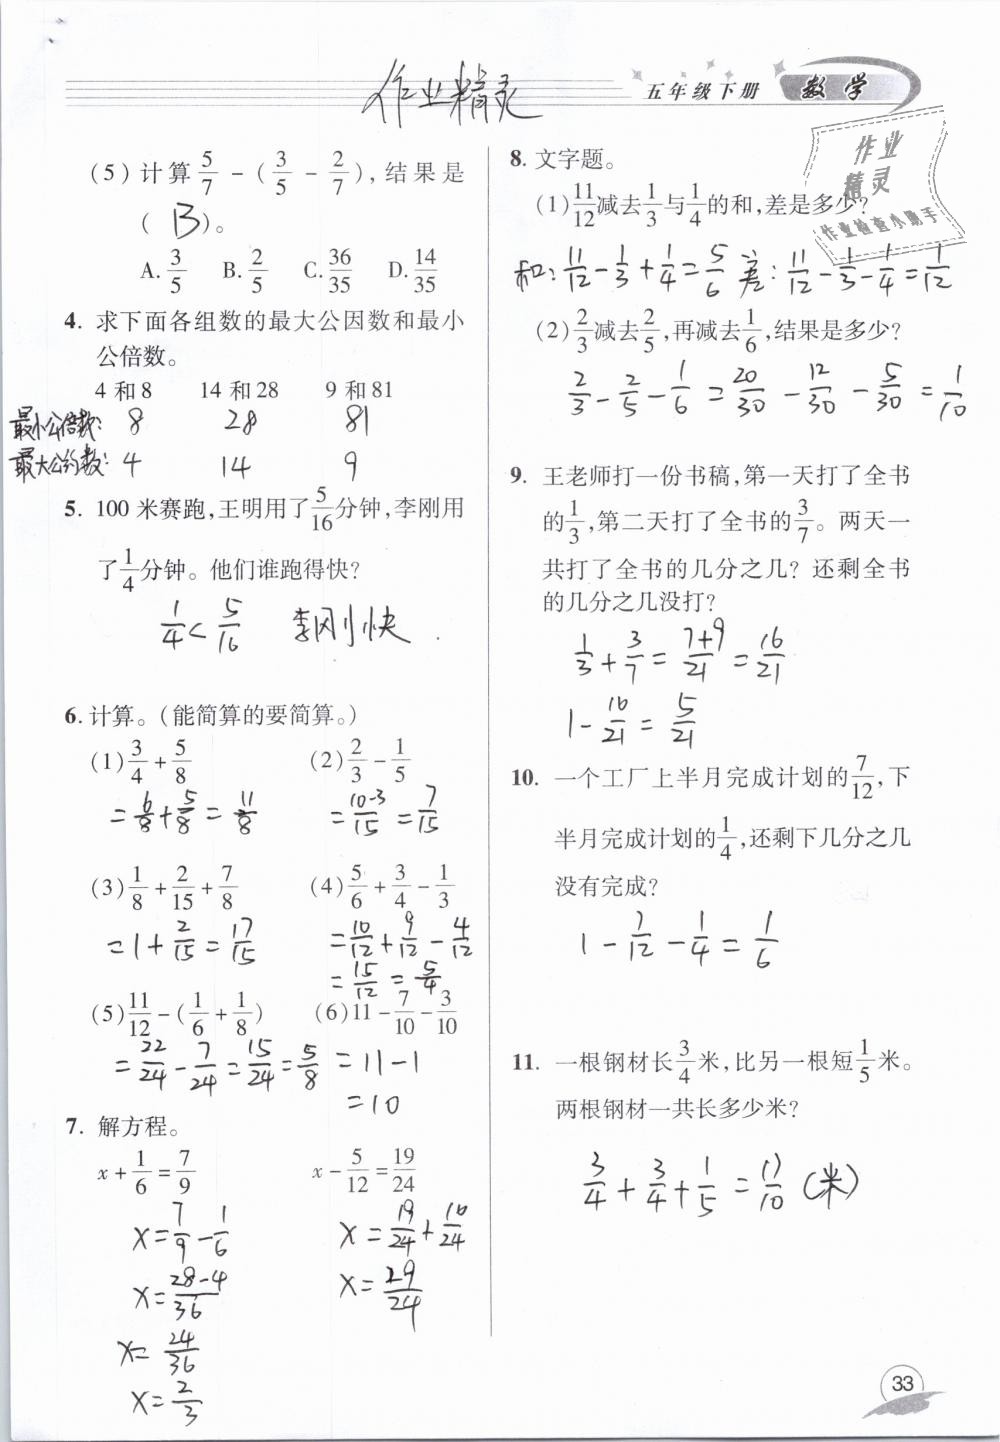 作业精灵
五年级下册 数学
作业
精灵
作业检查小助手
(5) 计算 5/7 - ( 3/5 - 2/7 ), 结果是
( B )。
A. 3/5 B. 2/5 C. 36/35 D. 14/35
4. 求下面各组数的最大公因数和最小
公倍数。
4 和 8 14 和 28 9 和 81
最小公倍数: 8 28 81
最大公约数: 4 14 9
5. 100 米赛跑,王明用了 5/16 分钟,李刚用
了 1/4 分钟。他们谁跑得快?
1/4 < 5/16 李刚快.
6. 计算。(能简算的要简算。)
(1) 3/4 + 5/8 (2) 2/3 - 1/5
= 6/8 + 5/8 = 11/8 = 10-3/15 = 7/15
(3) 1/8 + 2/15 + 7/8 (4) 5/6 + 3/4 - 1/3
= 1 + 2/15 = 17/15 = 10/12 + 9/12 - 4/12
= 15/12 = 5/4
(5) 11/12 - ( 1/6 + 1/8 ) (6) 11 - 7/10 - 3/10
= 22/24 - 7/24 = 15/24 = 5/8 = 11 - 1
= 10
7. 解方程。
x + 1/6 = 7/9 x - 5/12 = 19/24
x = 7/9 - 1/6 x = 19/24 + 10/24
x = 28-4/36 x = 29/24
x = 24/36
x = 2/3
8. 文字题。
(1) 11/12 减去 1/3 与 1/4 的和,差是多少?
和: 11/12 - 1/3 + 1/4 = 5/6 差: 11/12 - 1/3 - 1/4 = 1/12
(2) 2/3 减去 2/5 ,再减去 1/6 ,结果是多少?
2/3 - 2/5 - 1/6 = 20/30 - 12/30 - 5/30 = 1/10
9. 王老师打一份书稿,第一天打了全书
的 1/3 ,第二天打了全书的 3/7 。两天一
共打了全书的几分之几? 还剩全书
的几分之几没打?
1/3 + 3/7 = 7+9/21 = 16/21
1 - 16/21 = 5/21
10. 一个工厂上半月完成计划的 7/12 ,下
半月完成计划的 1/4 ,还剩下几分之几
没有完成?
1 - 7/12 - 1/4 = 1/6
11. 一根钢材长 3/4 米,比另一根短 1/5 米。
两根钢材一共长多少米?
3/4 + 3/4 + 1/5 = 17/10 (米)
33